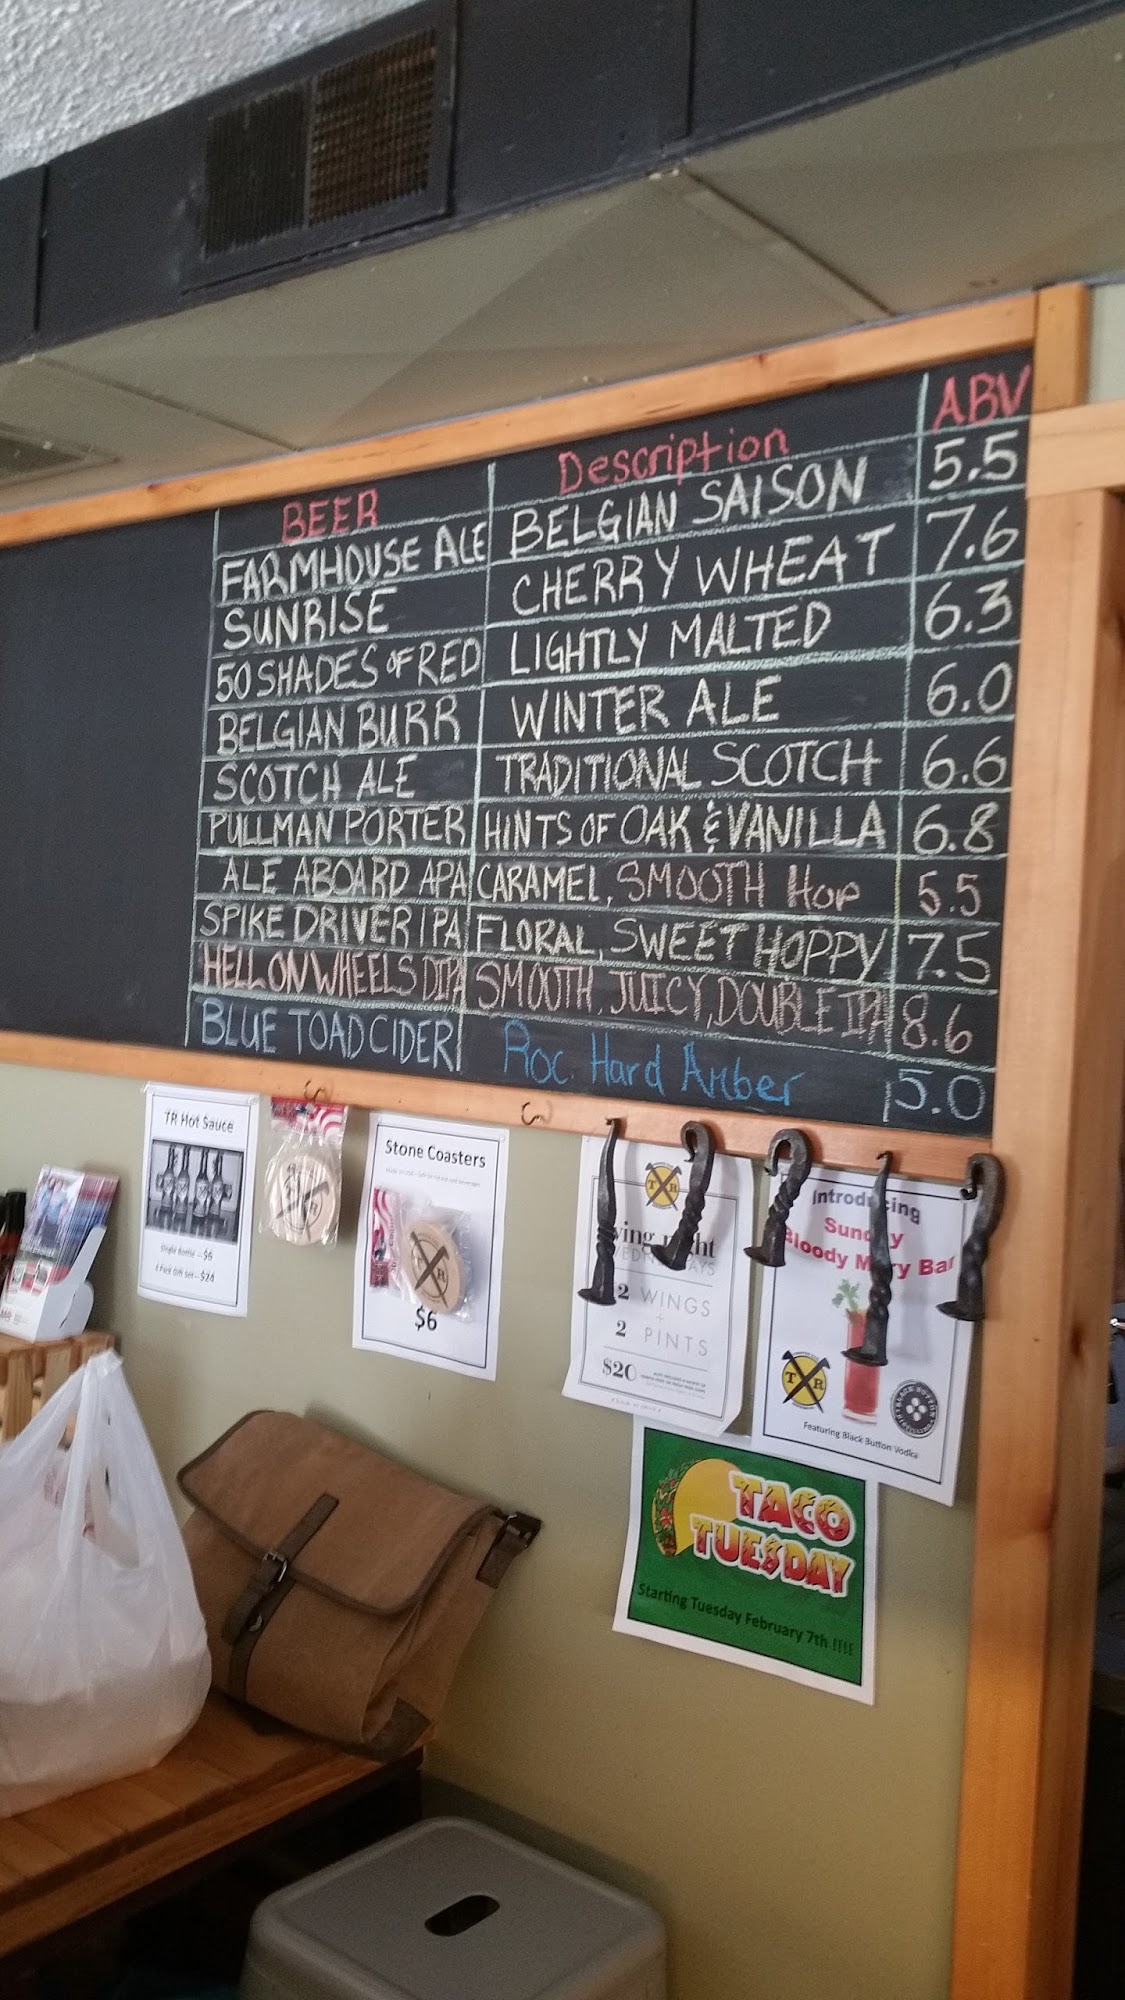 BEER Description ABV
FARMHOUSE ALE BELGIAN SAISON 5.5
SUNRISE CHERRY WHEAT 7.6
50 SHADES OF RED LIGHTLY MALTED 6.3
BELGIAN BURR WINTER ALE 6.0
SCOTCH ALE TRADITIONAL SCOTCH 6.6
PULLMAN PORTER HINTS OF OAK & VANILLA 6.8
ALE ABOARD APA CARAMEL, SMOOTH HOP 5.5
SPIKE DRIVER IPA FLORAL, SWEET HOPPY 7.5
HELL ON WHEELS DIPA SMOOTH, JUICY, DOUBLE IPA 8.6
BLUE TOAD CIDER Roc. Hard Amber 5.0
TR Hot Sauce
Single Bottle - $6
4 Pack Gift Set - $24
Stone Coasters
$6
T R
2 WINGS
+
2 PINTS
$20
Introducing
Sunday
Bloody Mary Bar
T R
BLACK BUTTON
Featuring Black Button Vodka
TACO
TUESDAY
Starting Tuesday February 7th !!!!